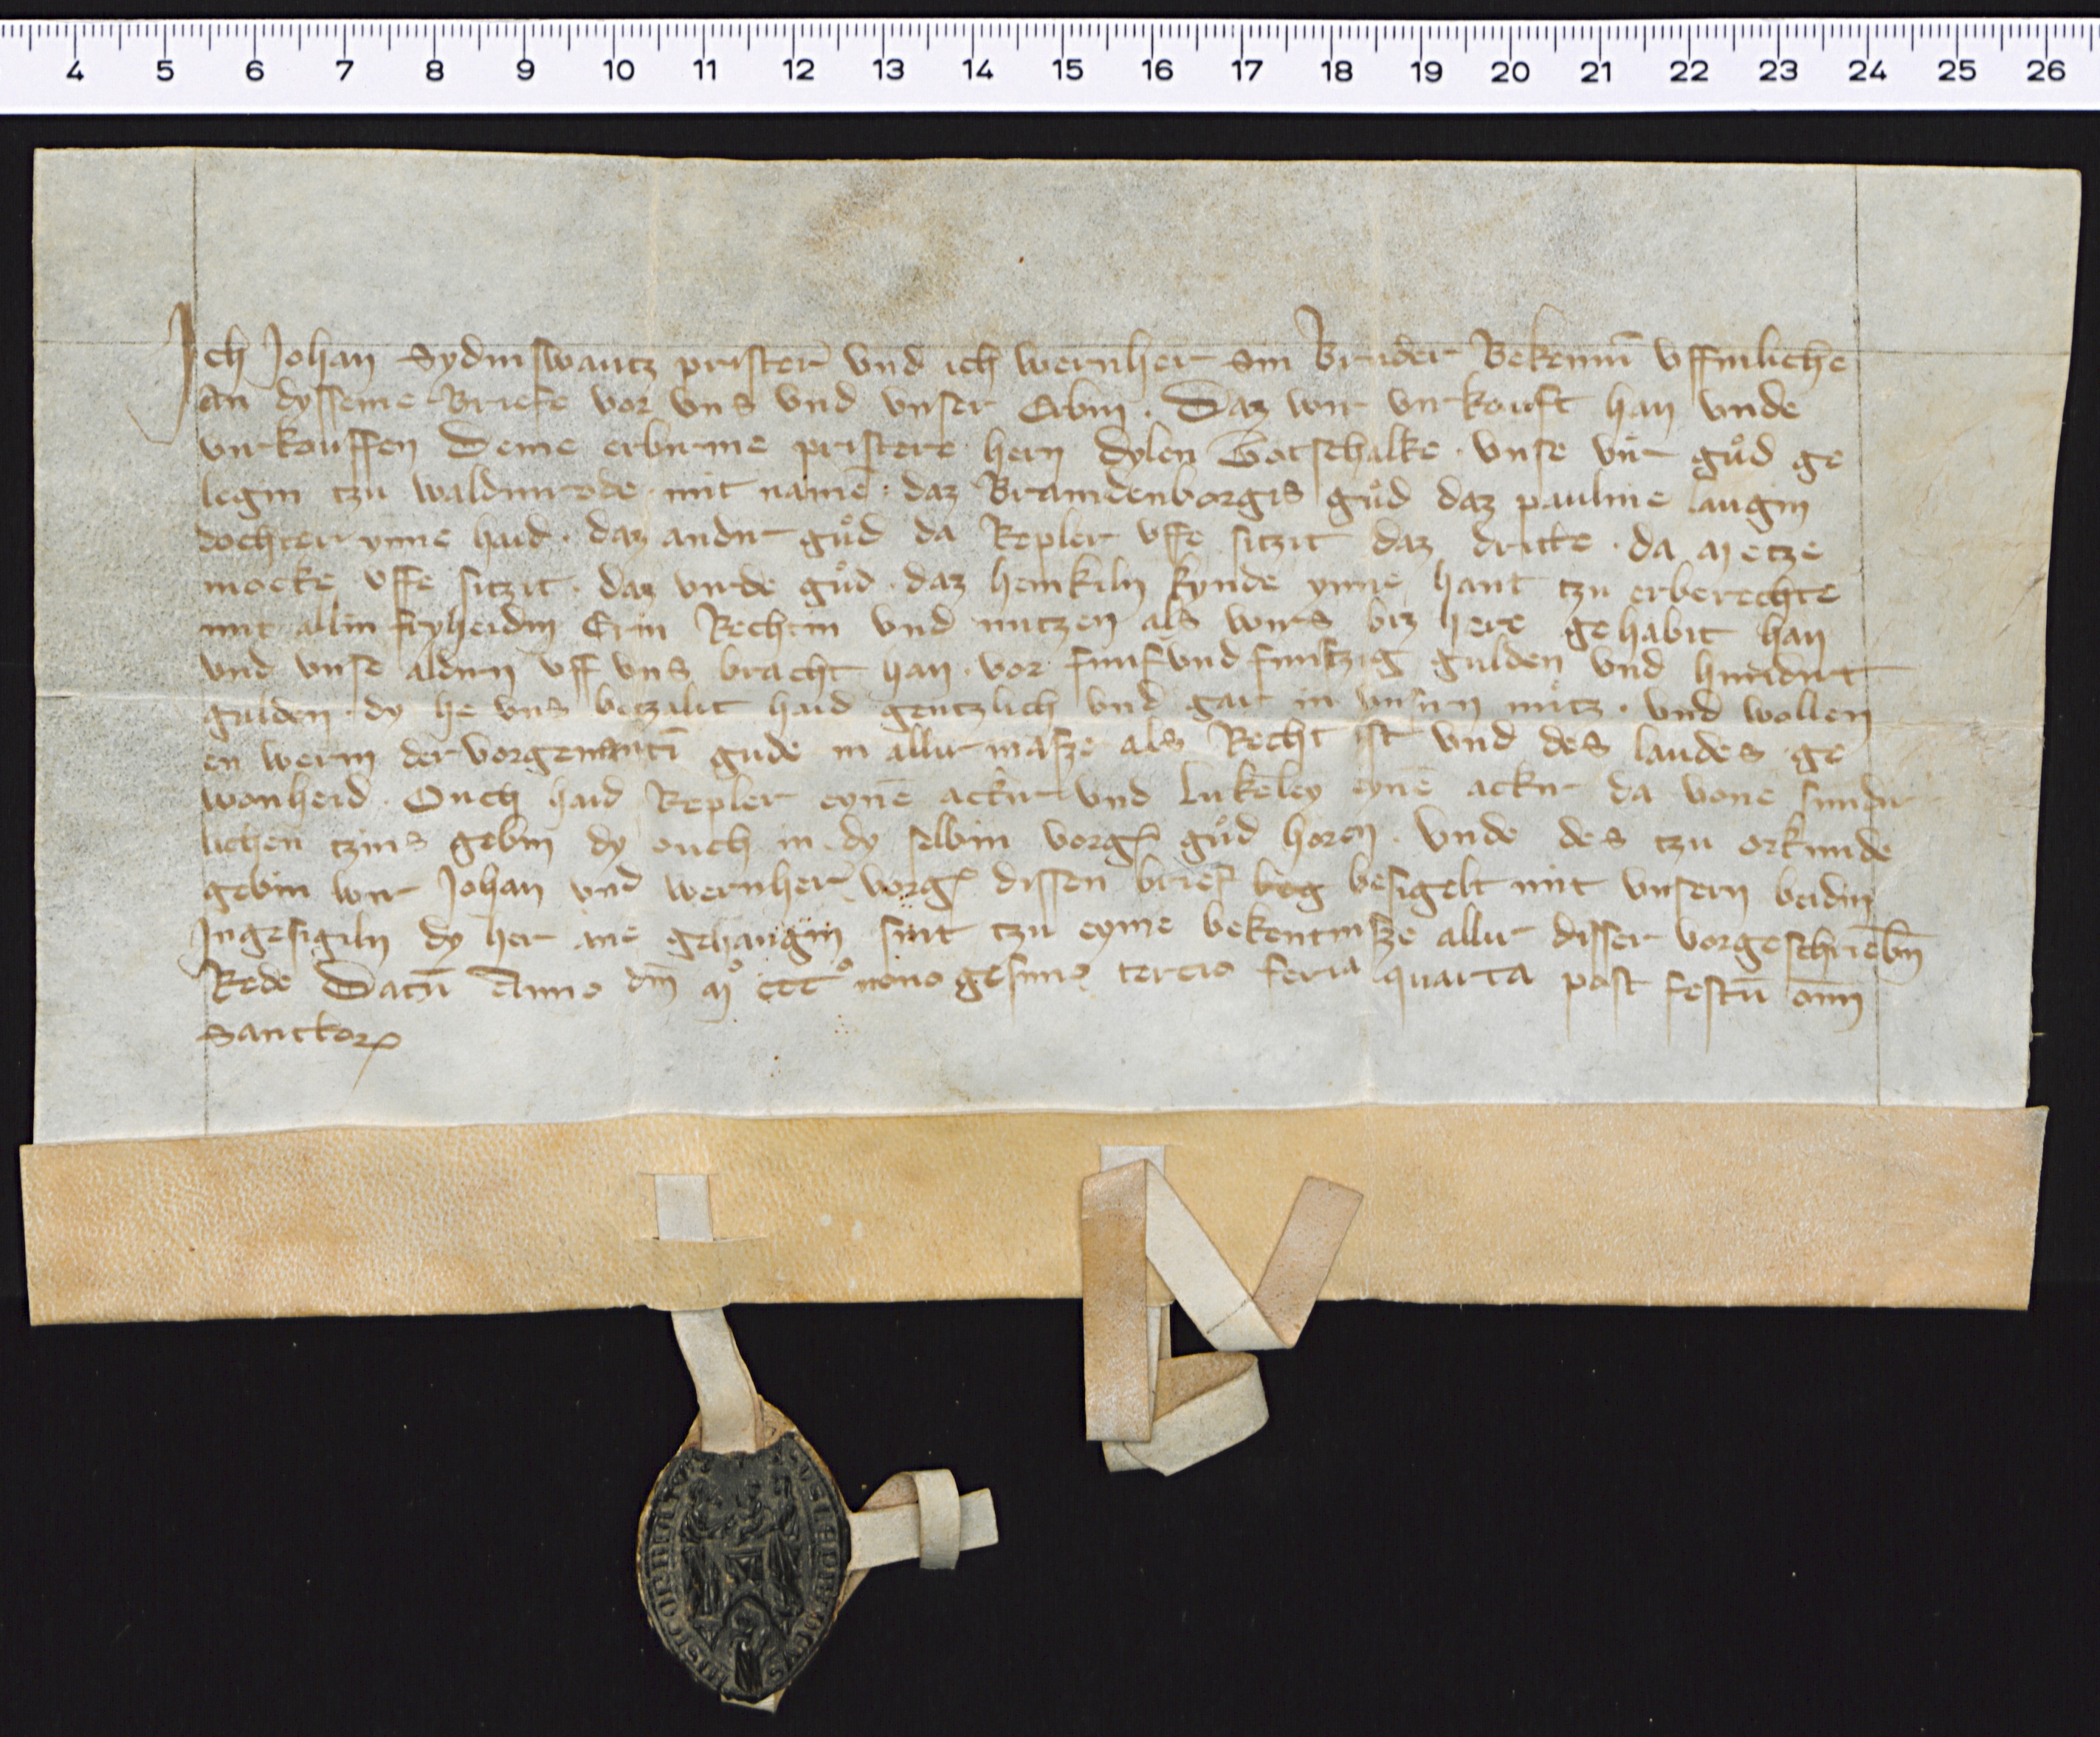 4 5 6 7 8 9 10 11 12 13 14 15 16 17 18 19 20 21 22 23 24 25 26
Ich Johan Sydinswantz prister vnd ich wernher sin Bruder Bekennī vffinlichē
an dysseme Briefe vor vns vnd vnser Erbin . Daz wir virkouft han vnde
virkouffen Deme erbirme pristere hern dylen Gotschalke . vnse vir gůd ge
legin tzu waldinrode mit namē . daz Brandenborgis gůd daz pauline langin
dochter ynne haid . daz andir gůd da Repler vffe sitzit daz dritte . da Metze
mocke vffe sitzit . daz virde gůd . daz henkiln kynde ynne hant tzu erberechte
mit allin fryheidin Erin Rechtin vnd nutzen als wirs biz here gehabit han
vnd vnse aldirn vff vns bracht han . vor funfvnd funfzig gulden vnd hundirt
gulden . dy he vns betzalit haid gentzlich vnd gar in vnsirn nůtz . vnd wollen
en werin der vorgenantī gude in allir masze als Recht ist vnd des landes ge
wonheid . Ouch haid Repler eynē ackir vnd Lukeley eynē ackir da vone sundir
lichen tzins gebin dy ouch in dy selbin vorgꝭ gůd horen . vnde des tzu orkunde
gebin wir Johan vnd wernher vorgꝭ dissen brief beg besigelt mit vnsern beidin
Ingesigiln dy her ane gehangin sint tzu eyme bekentnisze allir disser vorgeschriebn̄
Rede Datū Anno dn̄i Mº cccº nonogesimo tercio feria quarta post festū om̄
Sanctorꝝ